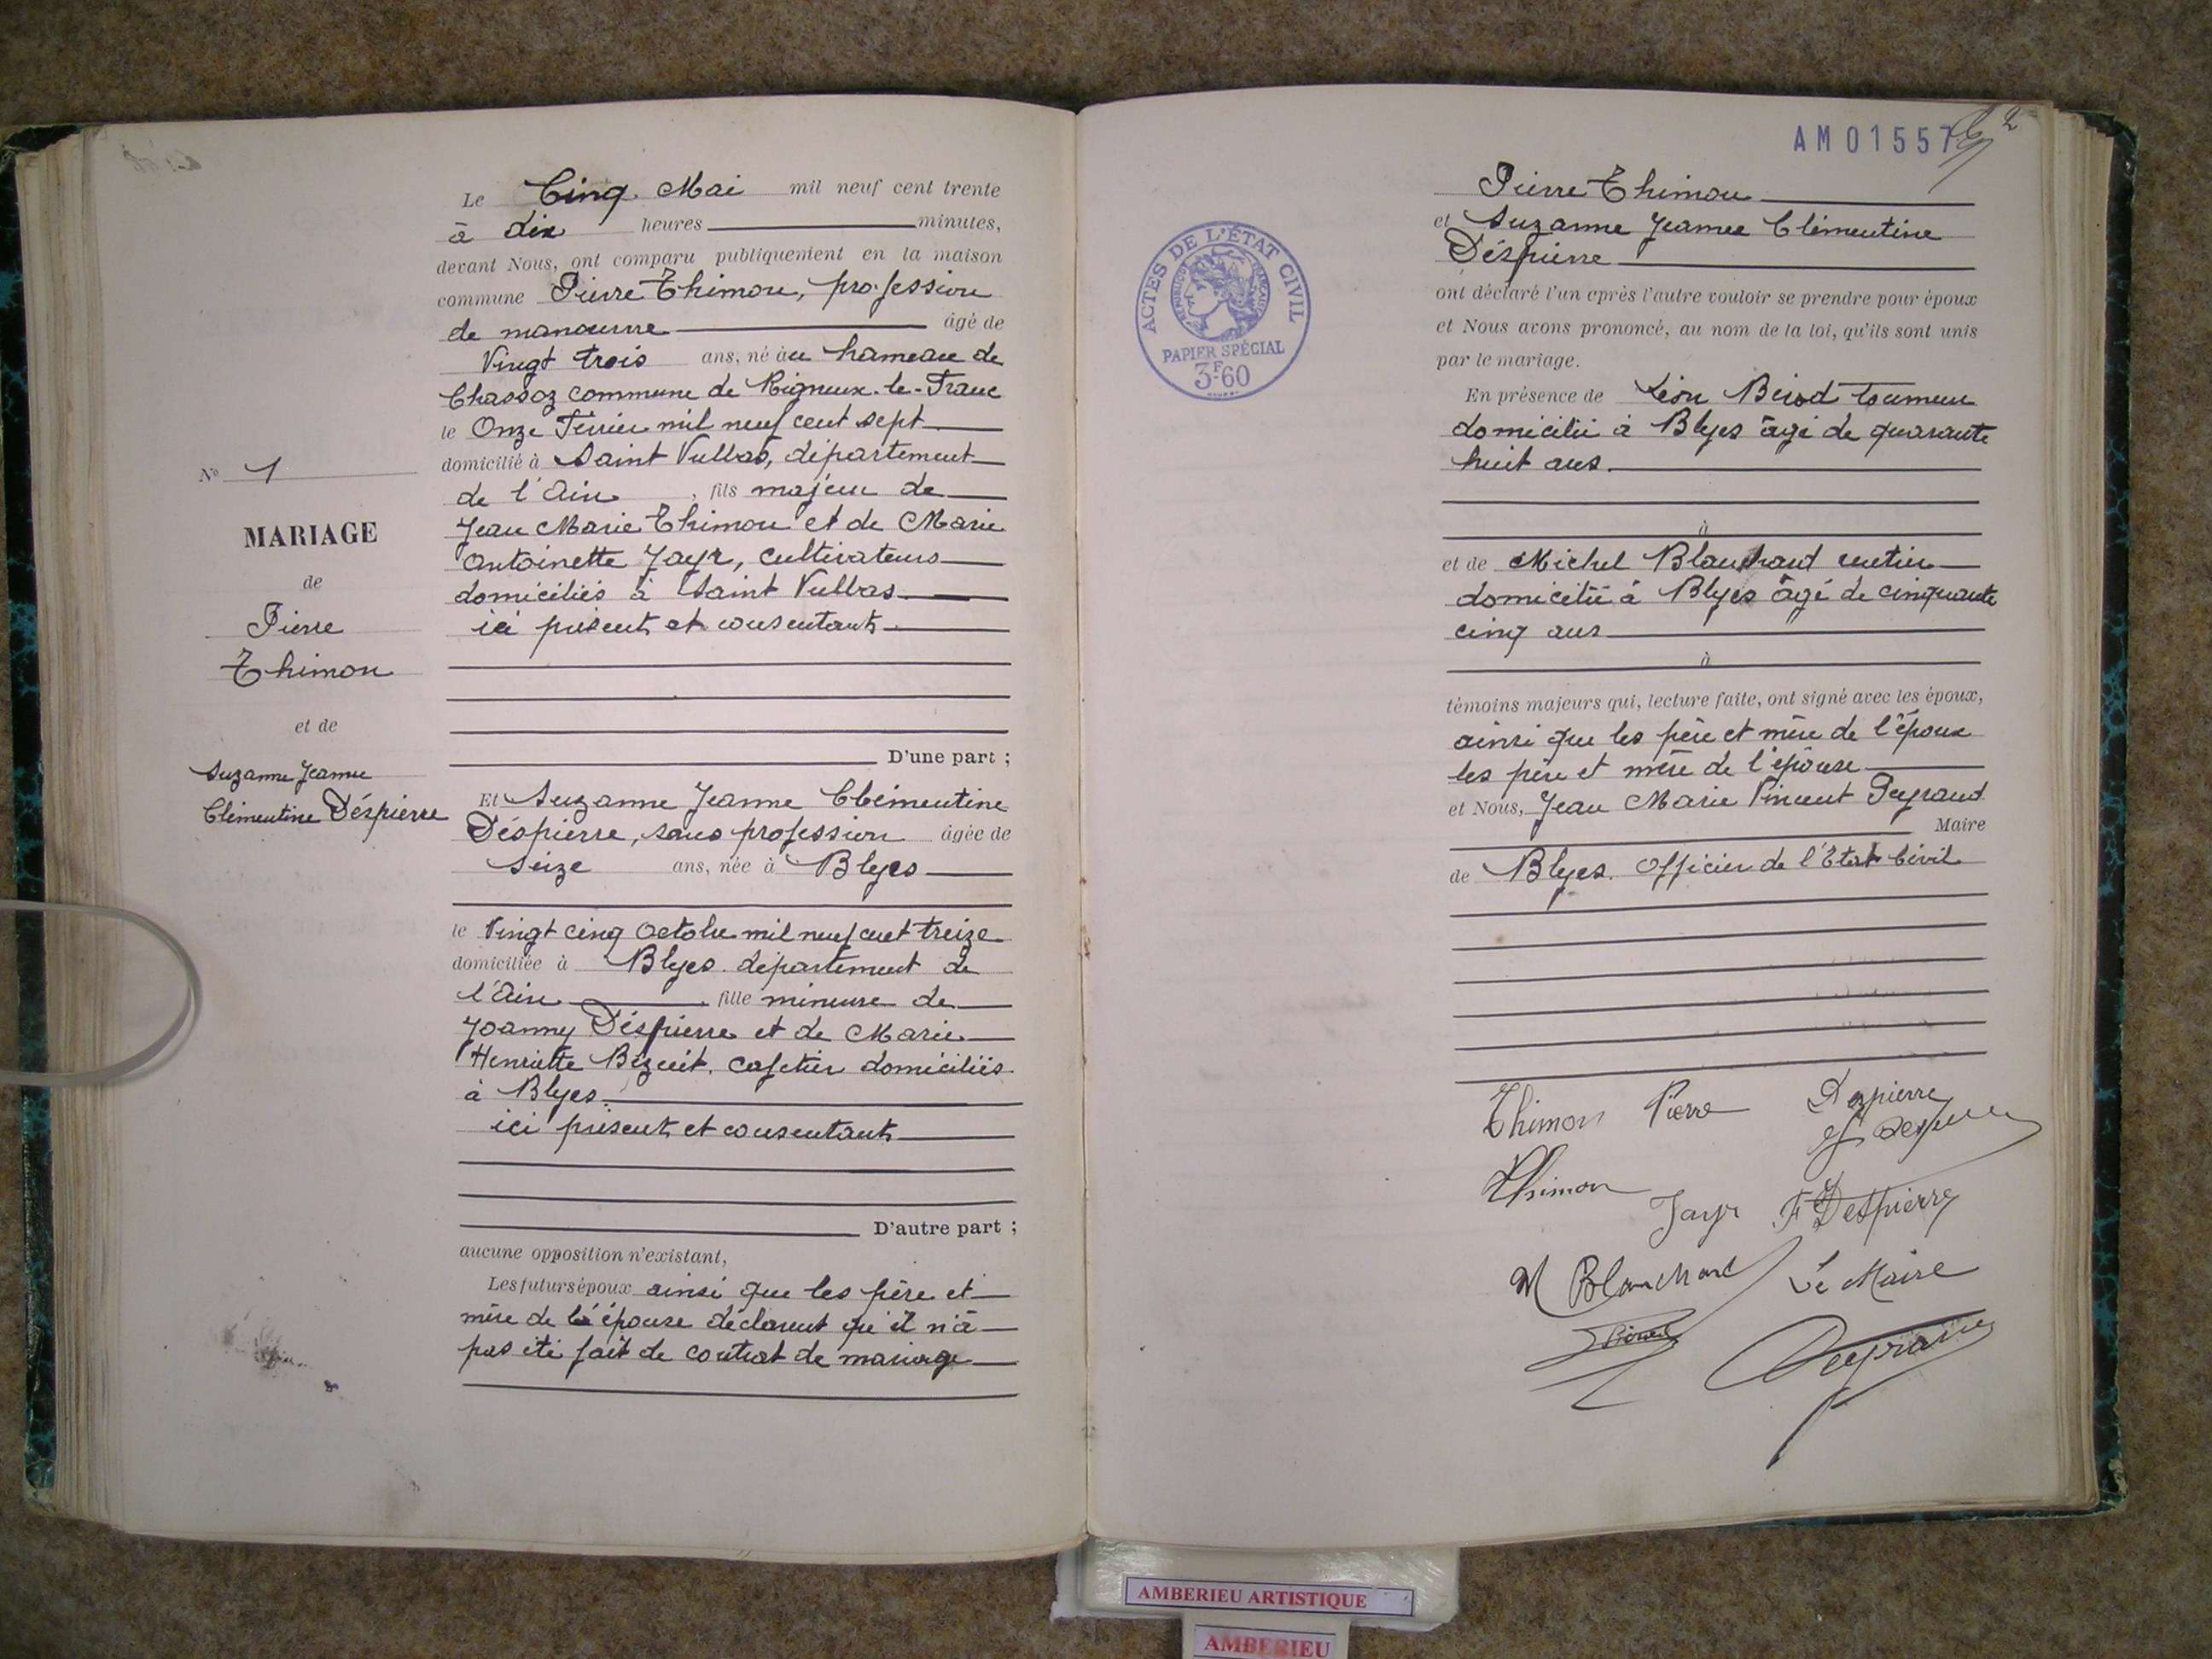 Le Cinq Mai mil neuf cent trente
à dix heures minutes,
devant Nous, ont comparu publiquement en la maison
commune Pierre Thimon, profession
de manœuvre âgé de
Vingt trois ans, né au hameau de
Chassoz commune de Rigneux-le-Franc
le Onze Février mil neuf cent sept
domicilié à Saint Vulbas, département
de l'Ain, fils majeur de
Jean Marie Thimon et de Marie
Antoinette Jayr, cultivateurs
domiciliés à Saint Vulbas
ici présents et consentants
D'une part ;
N° 1
MARIAGE
de
Pierre
Thimon
et de
Suzanne Jeanne
Clémentine Déspierre
Et Suzanne Jeanne Clémentine
Déspierre, sans profession âgée de
seize ans, née à Blyes
le Vingt cinq Octobre mil neuf cent treize
domiciliée à Blyes département de
l'Ain, fille mineure de
Joanny Déspierre et de Marie
Henriette cafetier domiciliés
à Blyes.
ici présents et consentants
D'autre part ;
aucune opposition n'existant,
Les futurs époux ainsi que les père et
mère de l'épouse déclarent qu'il n'a
pas été fait de contrat de mariage
AM01557
2
Pierre Thimon
et Suzanne Jeanne Clémentine
Déspierre
ont déclaré l'un après l'autre vouloir se prendre pour époux
et Nous avons prononcé, au nom de la loi, qu'ils sont unis
par le mariage.
En présence de Léon
domicilié à Blyes âgé de quarante
huit ans
à
et de Michel Blanchard rentier
domicilié à Blyes âgé de cinquante
cinq ans
à
témoins majeurs qui, lecture faite, ont signé avec les époux,
ainsi que les père et mère de l'époux
les père et mère de l'épouse
et Nous, Jean Marie Vincent Peyraud
Maire
de Blyes. Officier de l'Etat Civil
ACTES DE L'ÉTAT CIVIL
RÉPUBLIQUE FRANÇAISE
PAPIER SPÉCIAL
3F60
Thimon Pierre
Despierre
Thimon
Jayr F Despierre
M Blanchard Le Maire
Peyraud
AMBERIEU ARTISTIQUE
AMBERIEU